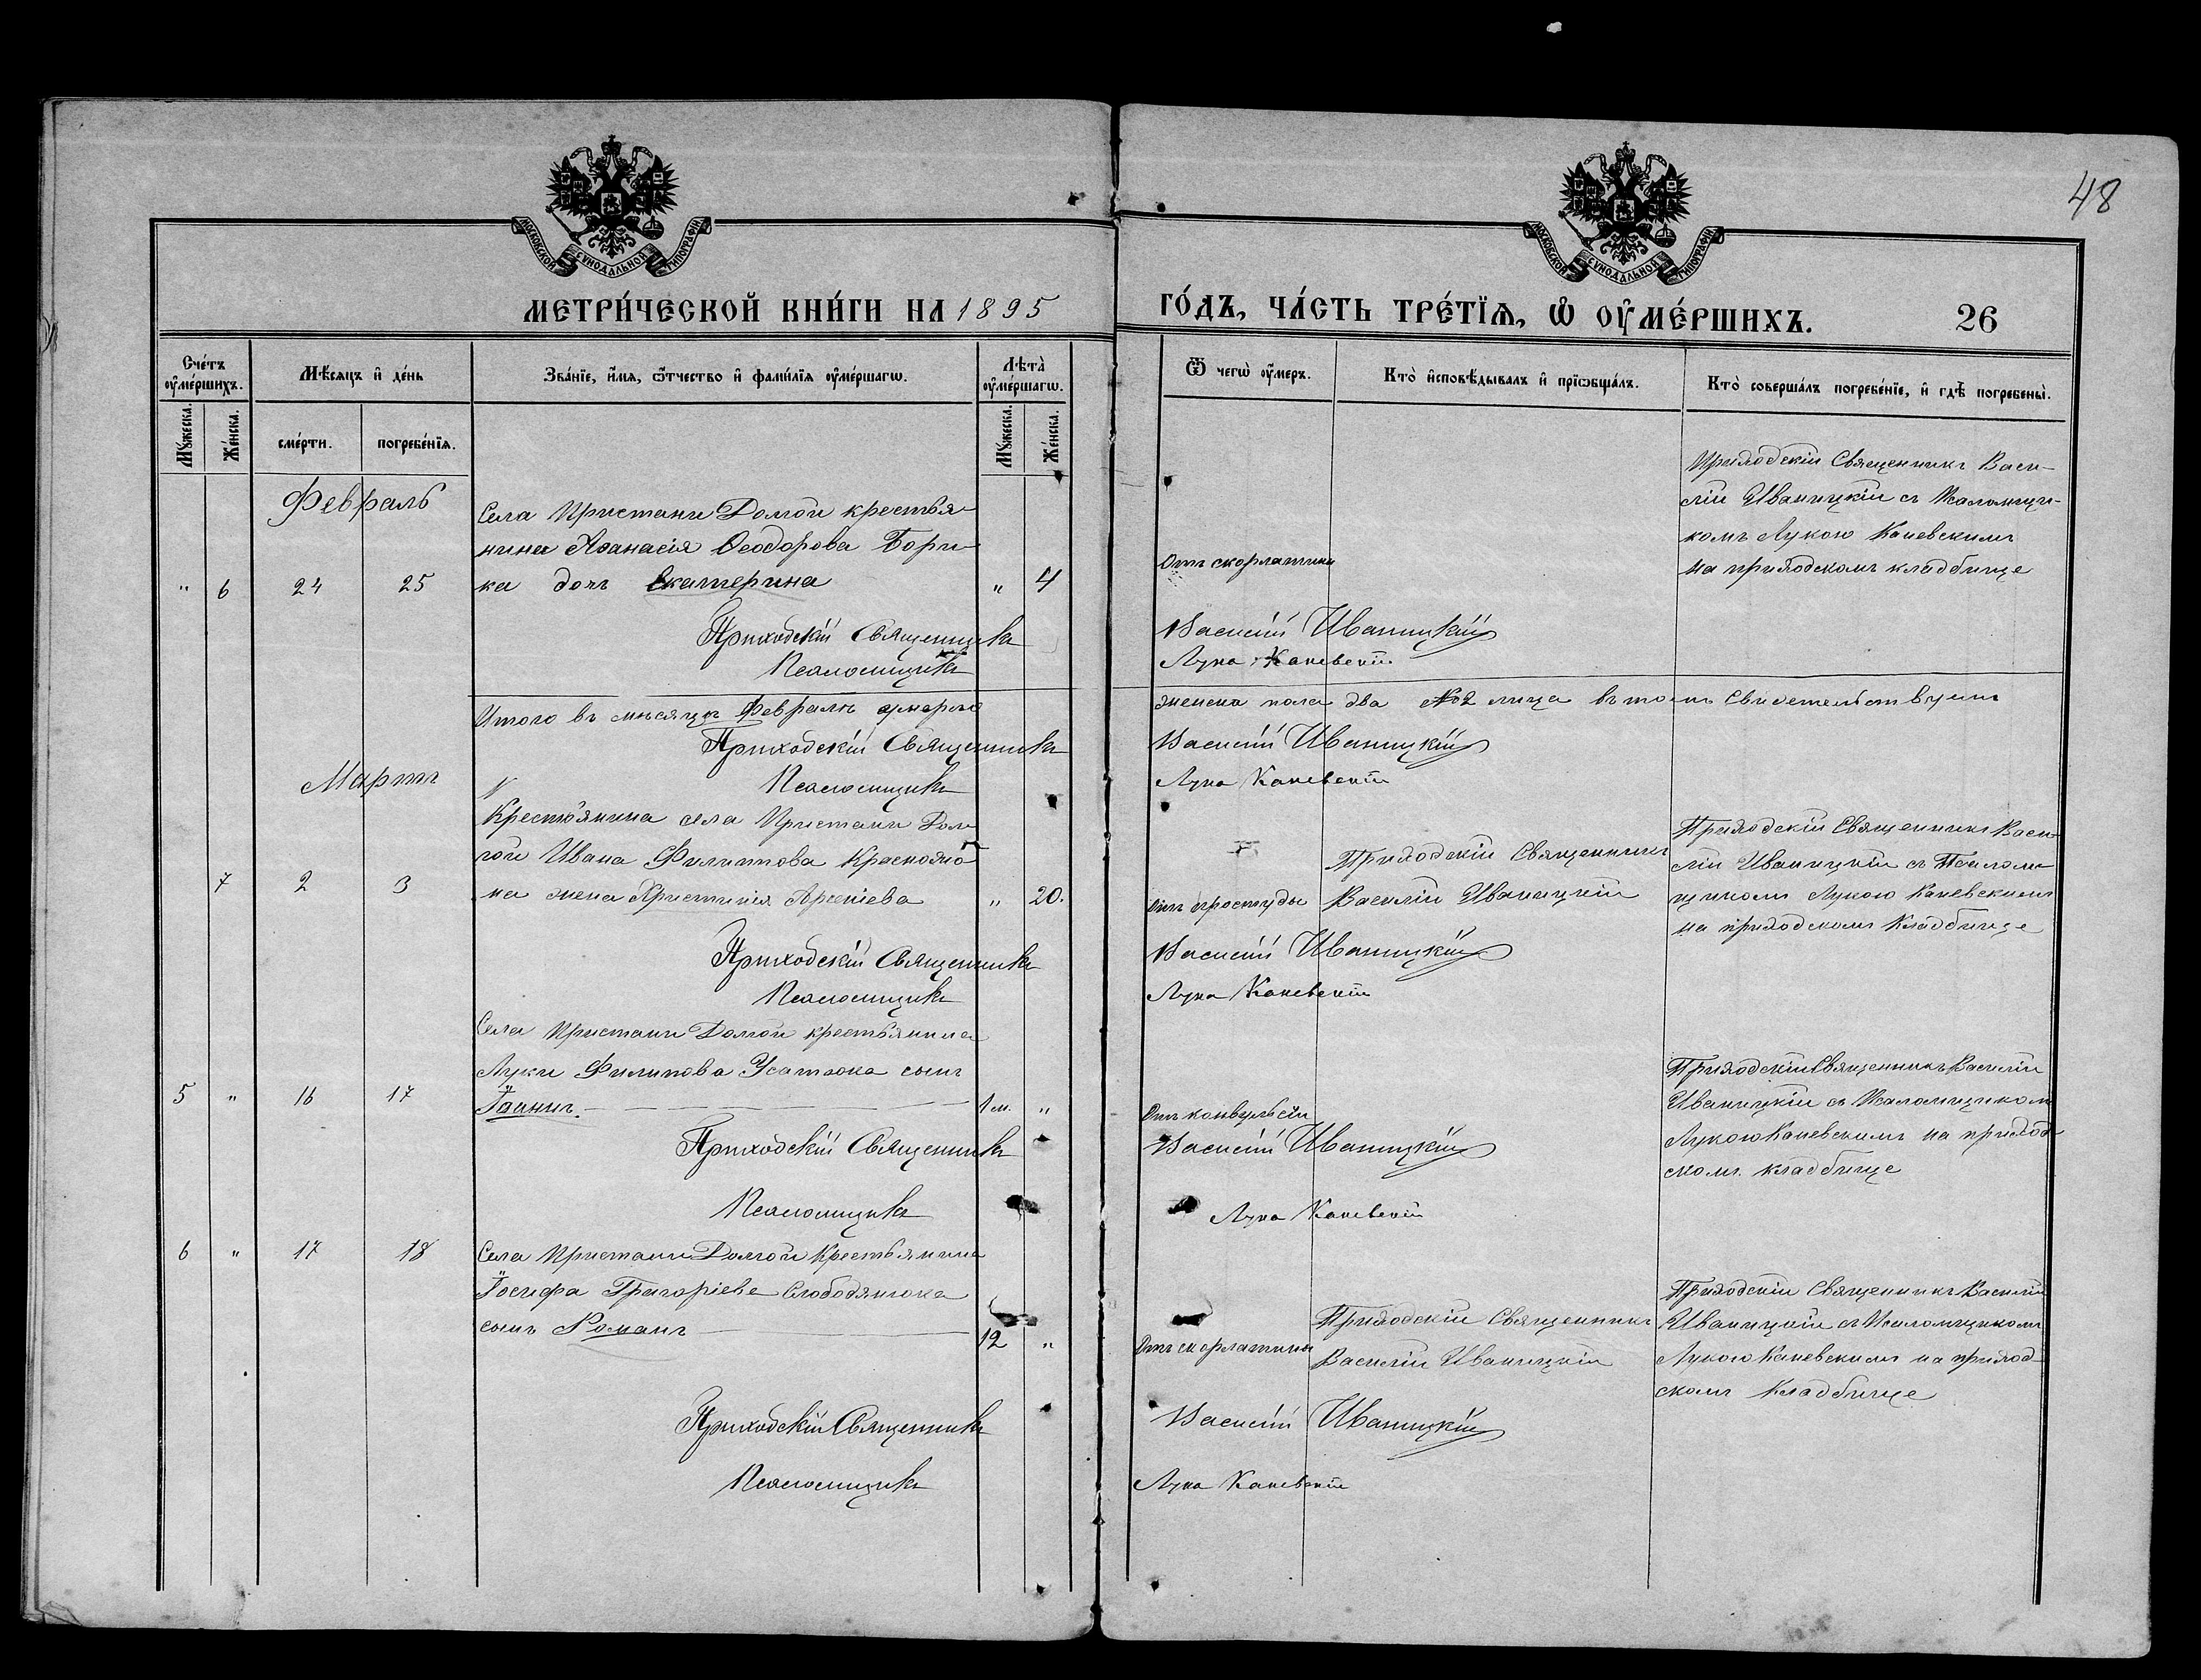 48
МОСКОВСКОЙ СѴНОДАЛЬНОЙ ТИПОГРАФІИ
МОСКОВСКОЙ СѴНОДАЛЬНОЙ ТИПОГРАФІИ
МЕТРИ́ЧЕСКОЙ КНИ́ГИ НА 1895
ГО́ДЪ, ЧА́СТЬ ТРЕ́ТЇѦ, Ѡ҆ ОУ҆МЕ́РШИХЪ.
26
Сче́тъ оу҆ме́ршихъ.
Мꙋ́жеска.
Же́нска.
Мѣ́сяцъ и҆ де́нь
сме́рти.
погребе́нїѧ.
Зва́нїе, и҆́мѧ, ѻ҆́тчество и҆ фами́лїѧ оу҆ме́ршагѡ.
Лѣ́та оу҆ме́ршагѡ.
Мꙋ́жеска.
Же́нска.
Ѿ чегѡ̀ оу҆́меръ.
Кто̀ и҆сповѣ́дывалъ и҆ прїѡбща́лъ.
Кто̀ соверша́лъ погребе́нїе, и҆ гдѣ̀ погребены̀.
Февраль
Села Пристани Долгой крестья-
нина Аѳанасія Ѳеодорова Бори-
" 6 24 25 ка дочь Екатерина " 4
Отъ скорлатины
Приходскій Священникъ Васи-
лій Иваницкій съ Псаломщи-
комъ Лукою Каневскимъ
на приходскомъ кладбище
Приходскій Священникъ Василій Иваницкій
Псаломщикъ Лука Каневскій
Итого въ мѣсяцѣ Февралѣ умерло женска пола два №2 лица въ томъ Свидетельствуемъ
Приходскій Священникъ Василій Иваницкій
Псаломщикъ Лука Каневскій
Мартъ
Крестьянина села Пристани Дол-
гой Ивана Филиппова
7 2 3 на жена Христинія Арсеніева " 20.
Отъ простуды
Приходскій Священникъ
Василій Иваницкій
Приходскій Священникъ Васи-
лій Иваницкій съ Псалом-
щикомъ Лукою Каневскимъ
на приходскомъ Кладбище
Приходскій Священникъ Василій Иваницкій
Псаломщикъ Лука Каневскій
Села Пристани Долгой крестьянина
Луки Филипова Усатюка сынъ
5 " 16 17 Іоаннъ. 1 м. "
Отъ конвульсіи
Приходскій Священникъ Василій
Иваницкій съ Псаломщикомъ
Лукою Каневскимъ на приход-
скомъ кладбище
Приходскій Священникъ Василій Иваницкій
Псаломщикъ Лука Каневскій
6 " 17 18 Села Пристани Долгой Крестьянина
Іосифа Григоріева Слободянюка
сынъ Романъ 12 "
Отъ скорлатины
Приходскій Священникъ
Василій Иваницкій
Приходскій Священникъ Василій
Иваницкій съ Псаломщикомъ
Лукою Каневскимъ на приход-
скомъ Кладбище
Приходскій Священникъ Василій Иваницкій
Псаломщикъ Лука Каневскій